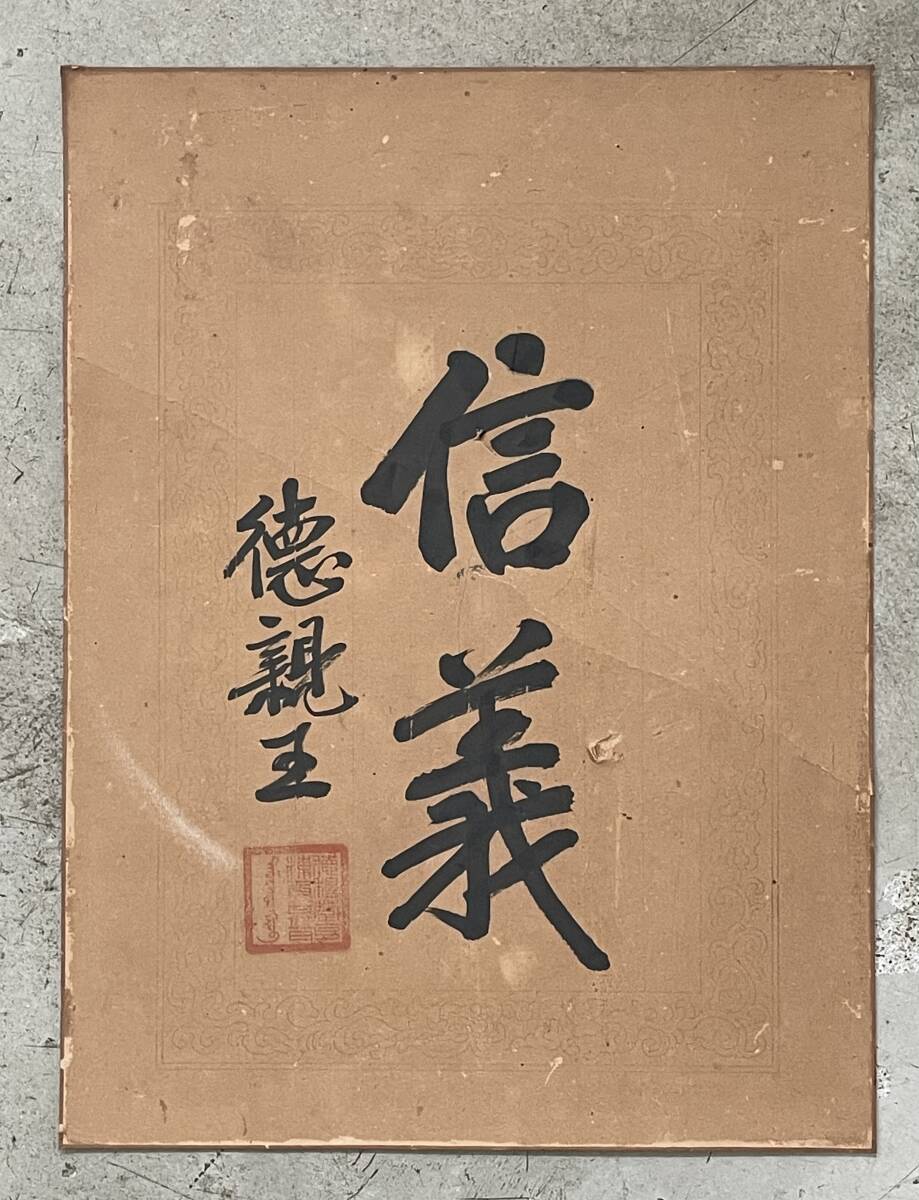 信義
德親王